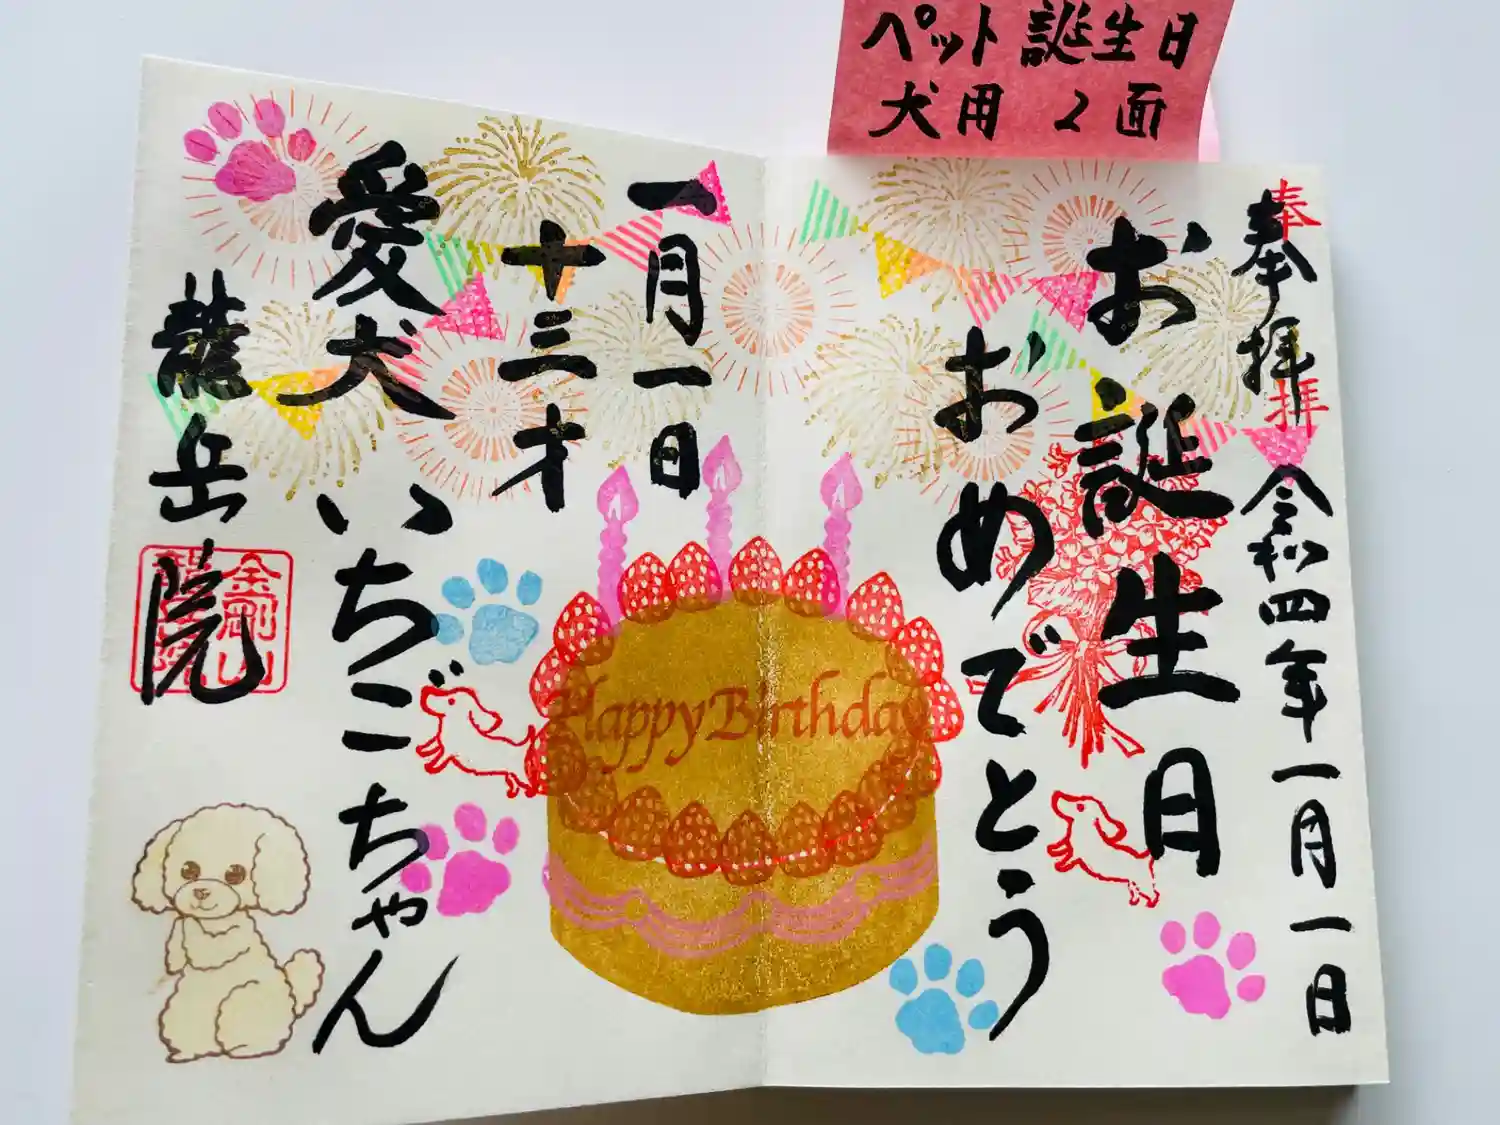 ペット誕生日
犬用 2面
奉拝
奉拝 令和四年一月一日
お誕生日
おめでとう
一月一日
十三才
愛犬 いちごちゃん
龍岳院
Happy Birthday